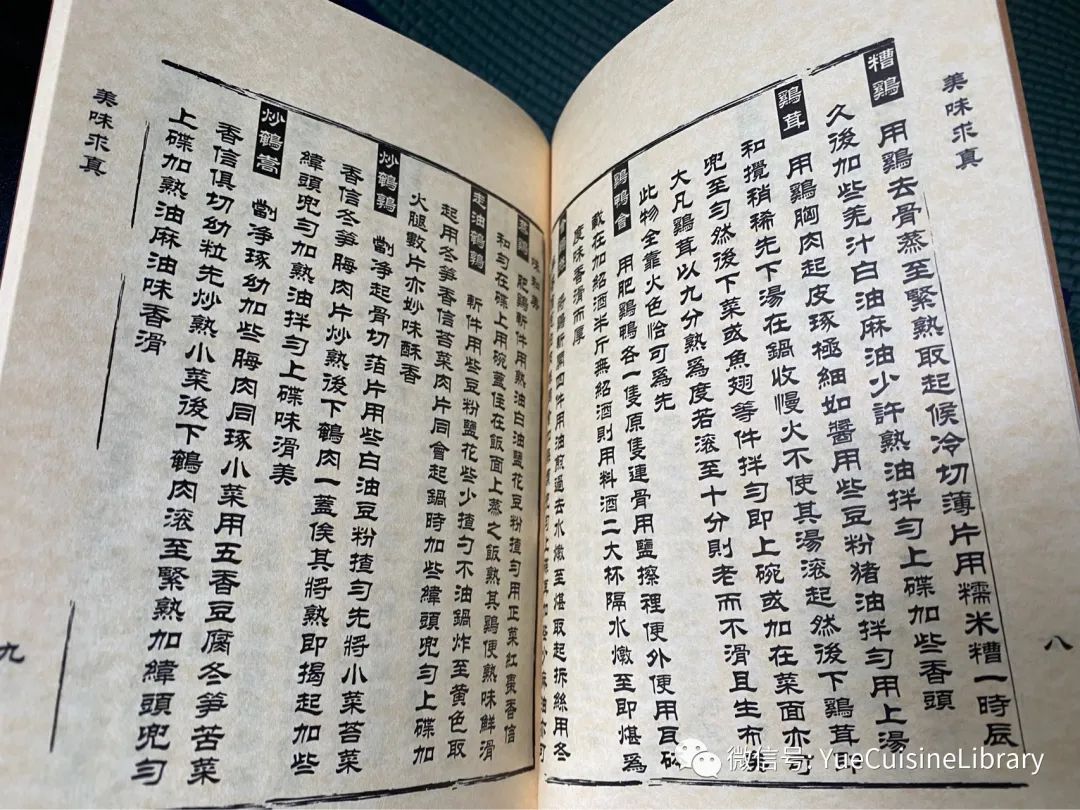 美味求真
糟鷄 用鷄去骨蒸至緊熟取起候冷切薄片用糯米糟一時辰
久後加些羌汁白油麻油少許熟油拌勻上碟加些香頭
鷄茸 用鷄胸肉起皮琢極細如醬用些豆粉猪油拌勻用上湯
和攪稍稀先下湯在鍋收慢火不使其湯滾起然後下鷄茸即
兜至勻然後下菜或魚翅等件拌勻即上碗或加在菜面亦可
大凡鷄茸以九分熟爲度若滾至十分則老而不滑且生布
此物全靠火色恰可爲先
鷄鴨會 用肥鷄鴨各一隻原隻連骨用鹽擦裡便外便用瓦砵
載在加紹酒半斤無紹酒則用料酒二大杯隔水燉至即煁爲
度味香滑而厚
鷄斬開四件用油煎過去水燉至煁取起拆絲用冬
八
美味求真
蒸鷄 肥鷄斬件用熟油白油鹽花豆粉揸勻用正菜紅棗香信
和勻在碟上用碗蓋住在飯面上蒸之飯熟其鷄便熟味鮮滑
走油鵪鶉 斬件用些豆粉鹽花些少揸勻不油鍋炸至黄色取
起用冬笋香信苔菜肉片同會起鍋時加些緯頭兜勻上碟加
火腿數片亦妙味酥香
炒鵪鶉 劏净起骨切箔片用些白油豆粉揸勻先將小菜苔菜
香信冬笋脢肉片炒熟後下鵪肉一蓋俟其將熟即揭起加些
緯頭兜勻加熟油拌勻上碟味滑美
炒鵪嵩 劏净琢幼加些脢肉同琢小菜用五香豆腐冬笋苦菜
香信俱切幼粒先炒熟小菜後下鵪肉滾至緊熟加緯頭兜勻
上碟加熟油麻油味香滑
九
微信号: YueCuisineLibrary